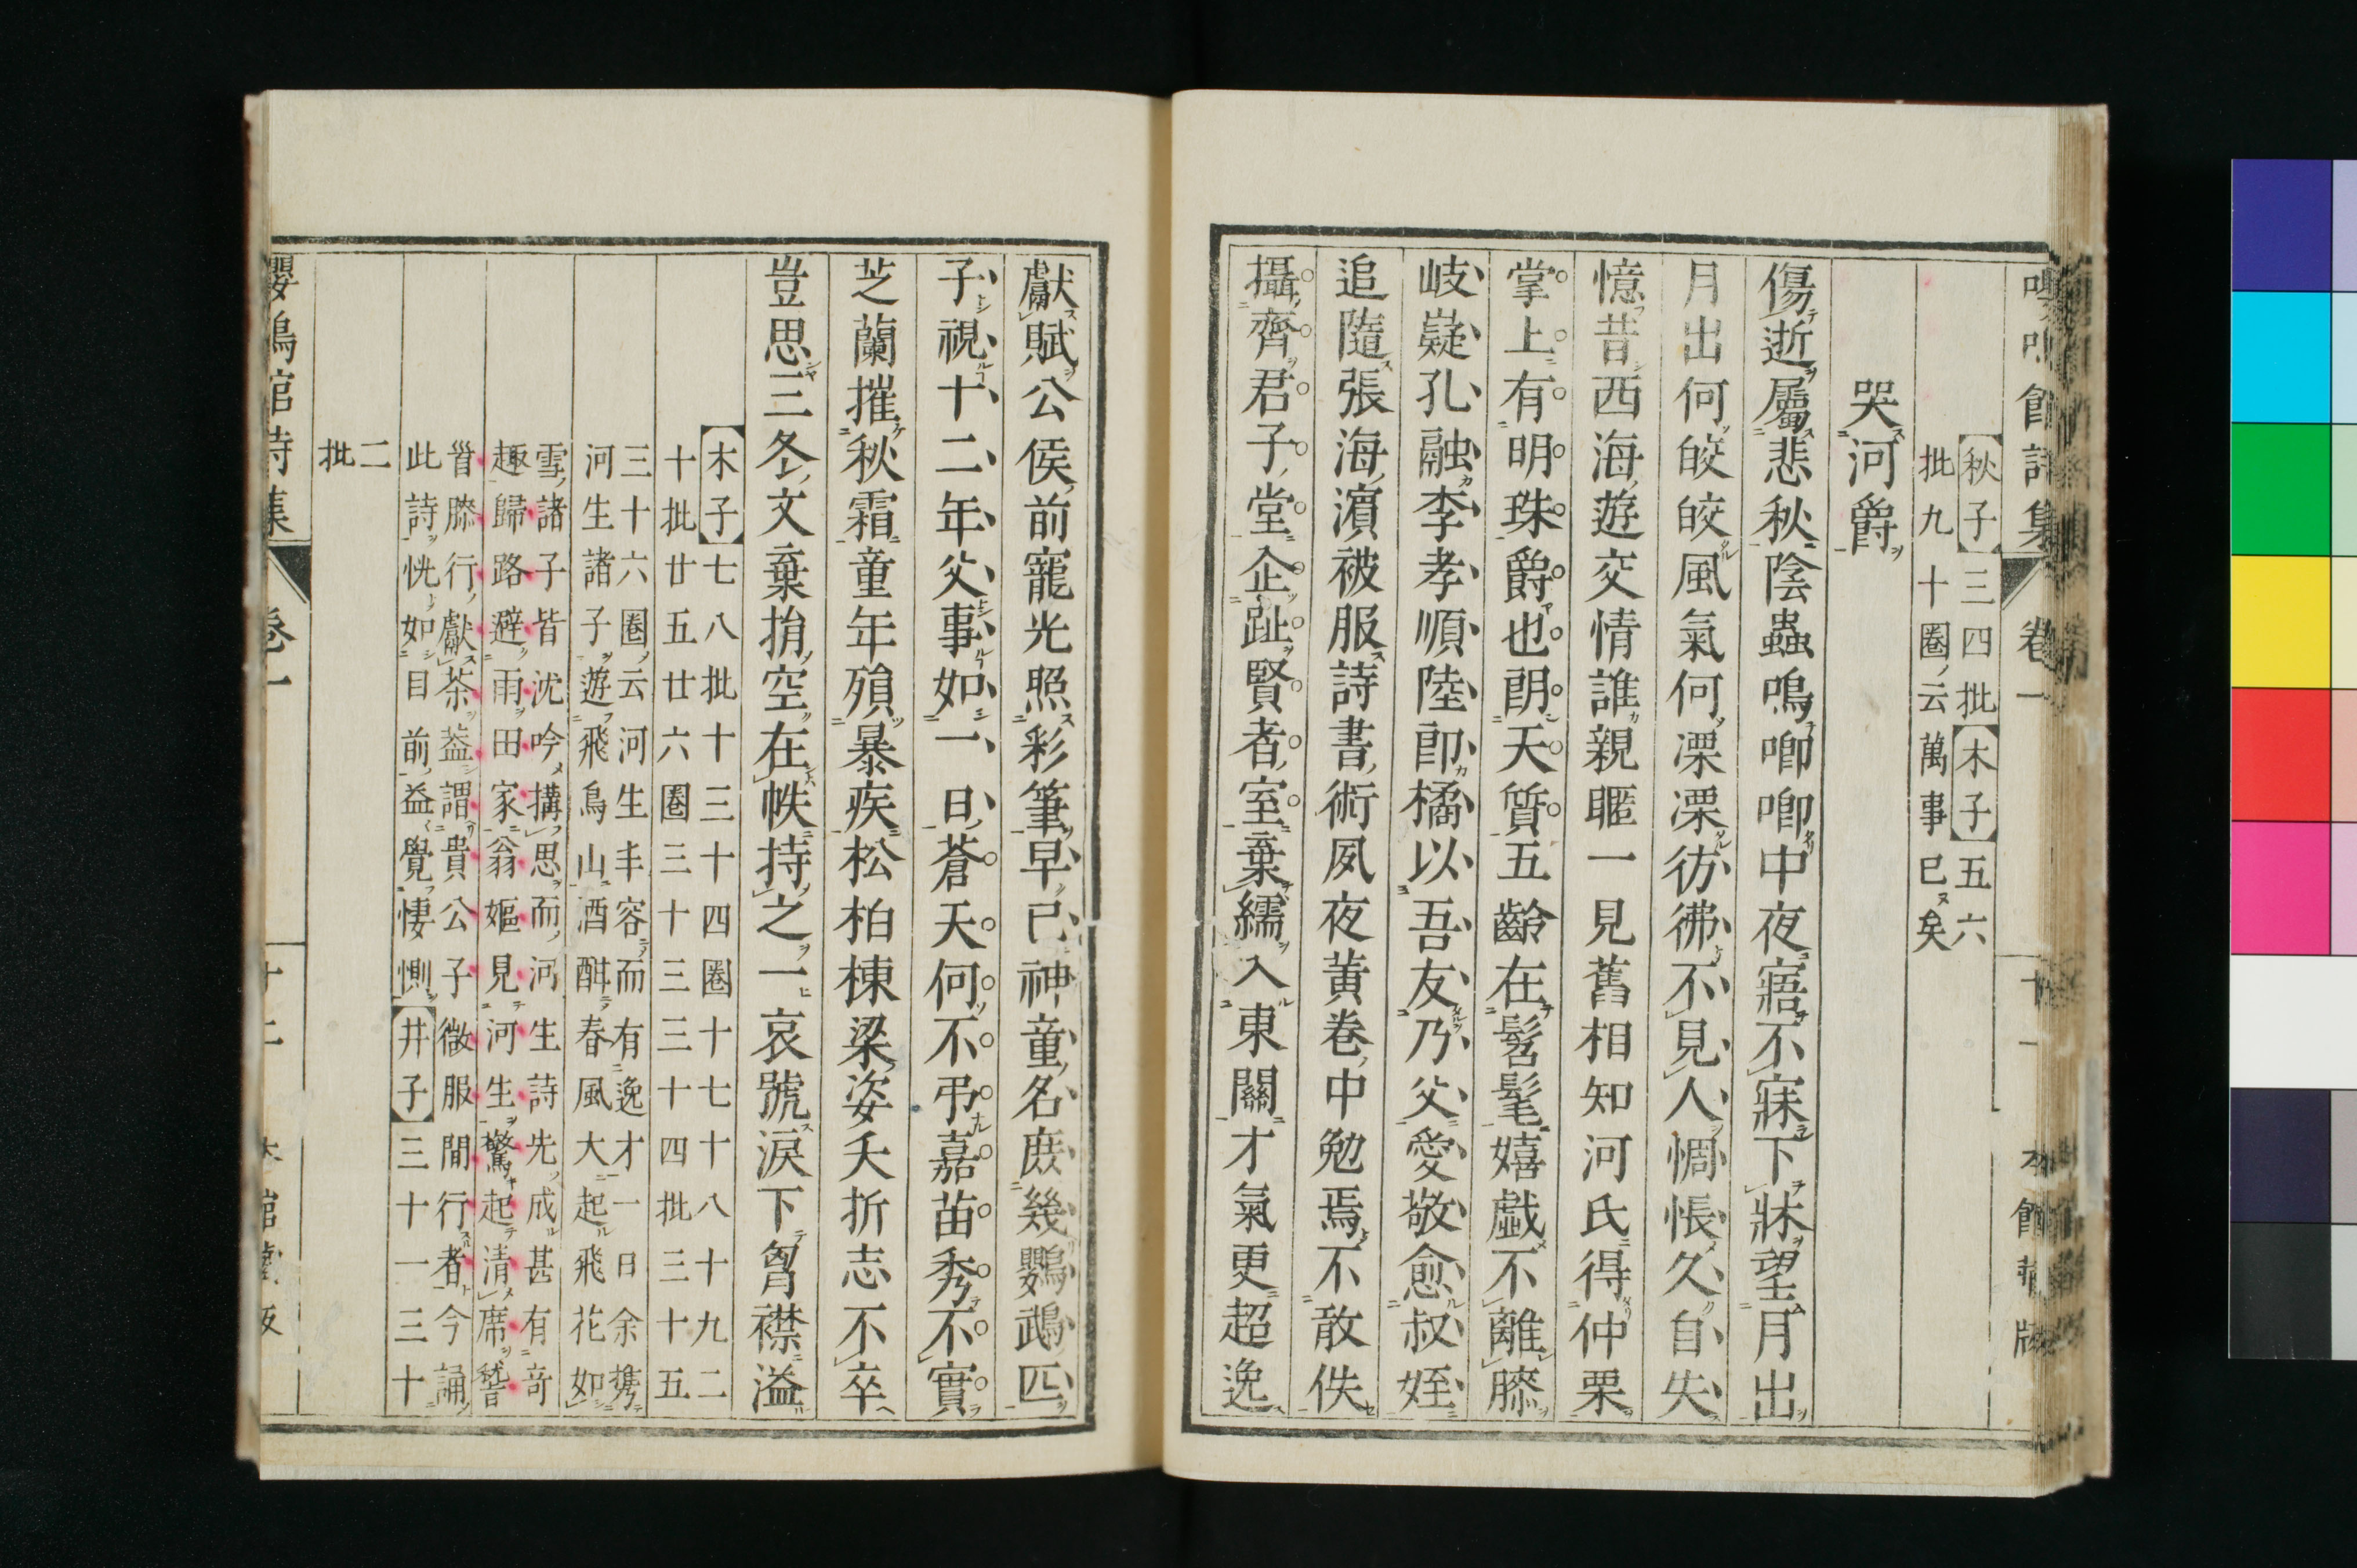 嚶鳴館詩集 卷一 十一 本館藏版
【秋子】三四批【木子】五六
批九十圈云萬事已矣
哭河爵
傷逝屬悲秋陰蟲鳴喞喞中夜寤不寐下牀望月出
月出何皎皎風氣何凓凓彷彿不見人惆悵久自失
憶昔西海遊交情誰親暱一見舊相知河氏得仲栗
掌上有明珠爵也朗天質五齡在髫髦嬉戯不離膝
岐嶷孔融李孝順陸卽橘以吾友乃父愛敬愈叔姪
追隨張海濱被服詩書術夙夜黃卷中勉焉不敢佚
攝齊君子堂企趾賢者室棄繻入東關才氣更超逸
獻賦公侯前寵光照彩筆早已神童名庶幾鸚鵡匹
子視十二年父事如一日蒼天何不弔嘉苗秀不實
芝蘭摧秋霜童年殞暴疾松柏棟梁姿夭折志不卒
豈思三冬文棄捐空在帙持之一哀號淚下胷襟溢
【木子】七八批十三十四圈十七十八十九二
十批廿五廿六圈三十三三十四批三十五
三十六圈云河生丰容而有逸才一日余携
河生諸子遊飛鳥山酒酣春風大起飛花如
雪諸子皆沈吟搆思而河生詩先成甚有竒
趣歸路避雨田家翁嫗見河生驚起清席誓
㫺膝行獻茶葢謂貴公子微服間行者今誦
此詩恍如目前益覺悽惻【井子】三十一三十
二批
嚶鳴館詩集 卷一 十二 本館藏版